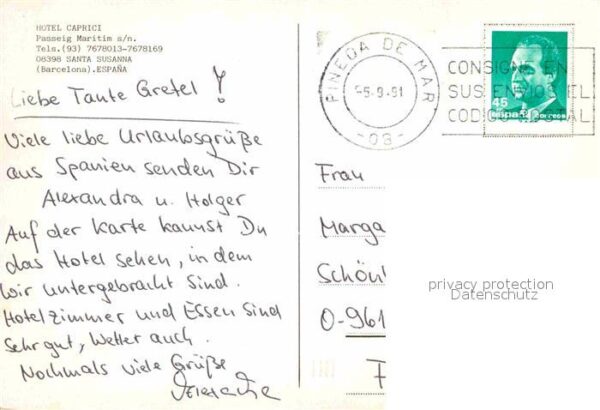 HOTEL CAPRICI
Passeig Maritim s/n.
Tels.(93) 7678013-7678169
08398 SANTA SUSANNA
(Barcelona).ESPAÑA
Liebe Tante Gretel !
Viele liebe Urlaubsgrüße
aus Spanien senden Dir
Alexandra u. Holger
Auf der Karte kannst Du
das Hotel sehen, in dem
wir untergebracht sind.
Hotelzimmer und Essen sind
sehr gut, Wetter auch.
Nochmals viele Grüße
PINEDA DE MAR
-5.9.91
-08-
CONSIGNE EN
SUS ENVIOS EL
CODIGO POSTAL
45
España Correos
Frau
Marga
Schön
O-961
F
privacy protection
Datenschutz